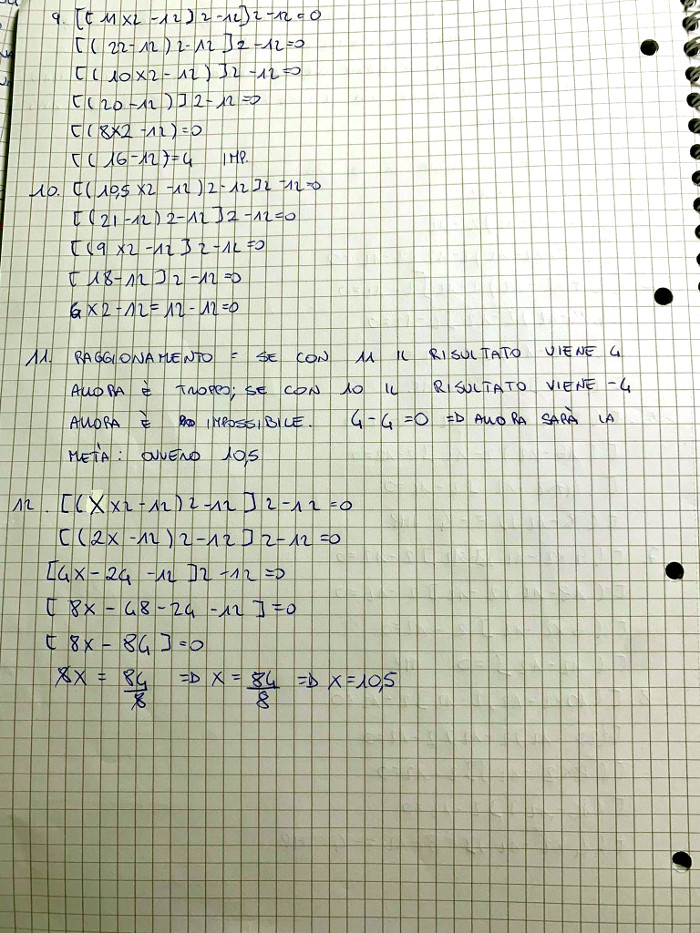 9. [( 11x2 -12) 2-12] 2-12=0
[( 22-12) 2-12] 2-12=0
[( 10x2-12)] 2-12=0
[(20-12)] 2-12=0
[(8x2-12)=0
[( 16-12)=4 IMP.
10. [(10,5x2 -12) 2-12] 2-12=0
[(21-12) 2-12] 2-12=0
[(9x2-12] 2-12=0
[18-12] 2-12=0
6x2-12=12-12=0
11. RAGGIONAMENTO = SE CON 11 IL RISULTATO VIENE 4
ALLORA È TROPPO; SE CON 10 IL RISULTATO VIENE -4
ALLORA È IMPOSSIBILE. 4-4=0 => ALLORA SARÀ LA
METÀ: OVVERO 10,5
12. [(X x2-12) 2-12] 2-12=0
[(2x-12) 2-12] 2-12=0
[4x-24-12] 2-12=0
[8x-48-24-12]=0
[8x-84]=0
8x = 84/8 => x = 84/8 => x=10,5